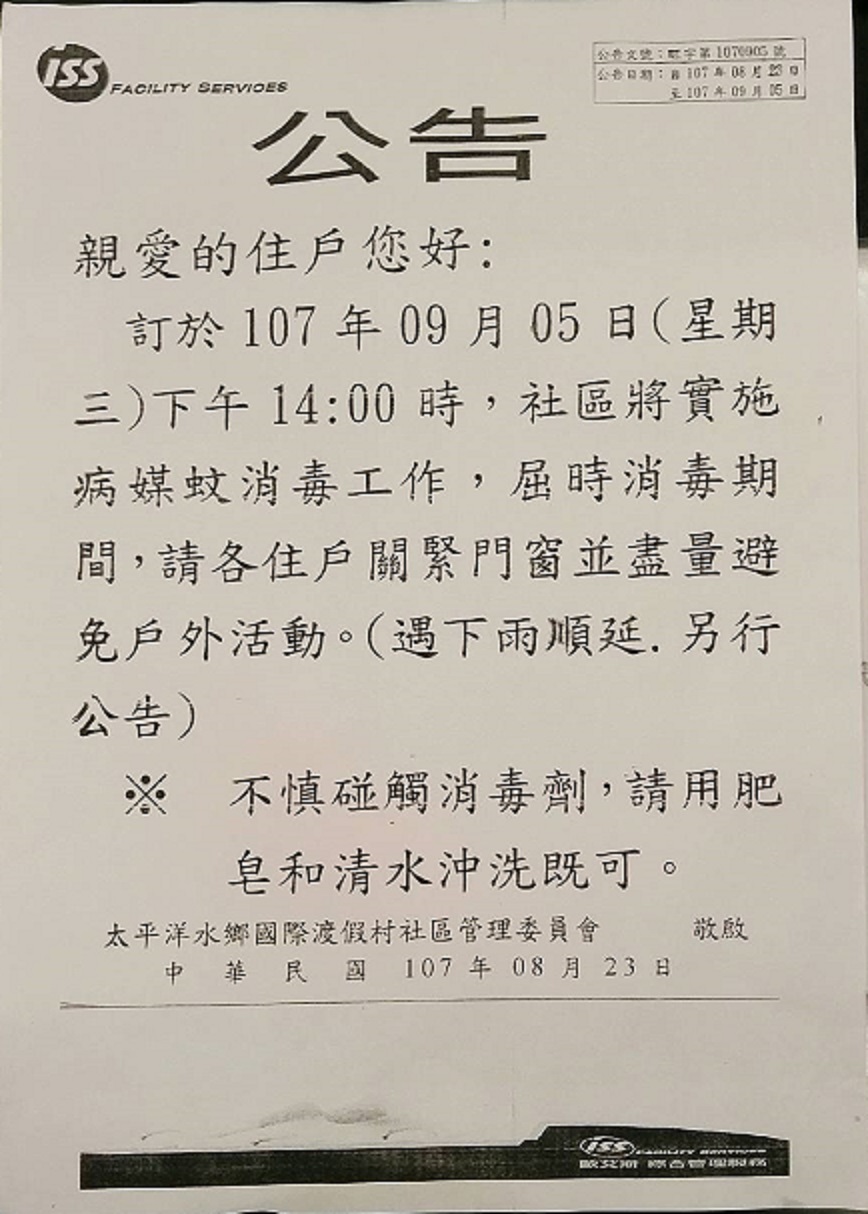 ISS FACILITY SERVICES
公告文號：字第 1070905 號
公告日期：自 107 年 08 月 23 日
至 107 年 09 月 05 日
公告
親愛的住戶您好:
訂於 107 年 09 月 05 日(星期
三)下午 14:00 時，社區將實施
病媒蚊消毒工作，屆時消毒期
間，請各住戶關緊門窗並盡量避
免戶外活動。(遇下雨順延. 另行
公告)
※ 不慎碰觸消毒劑，請用肥
皂和清水沖洗既可。
太平洋水鄉國際渡假村社區管理委員會 敬啟
中華民國 107 年 08 月 23 日
ISS FACILITY SERVICES
歐艾斯 綜合管理服務